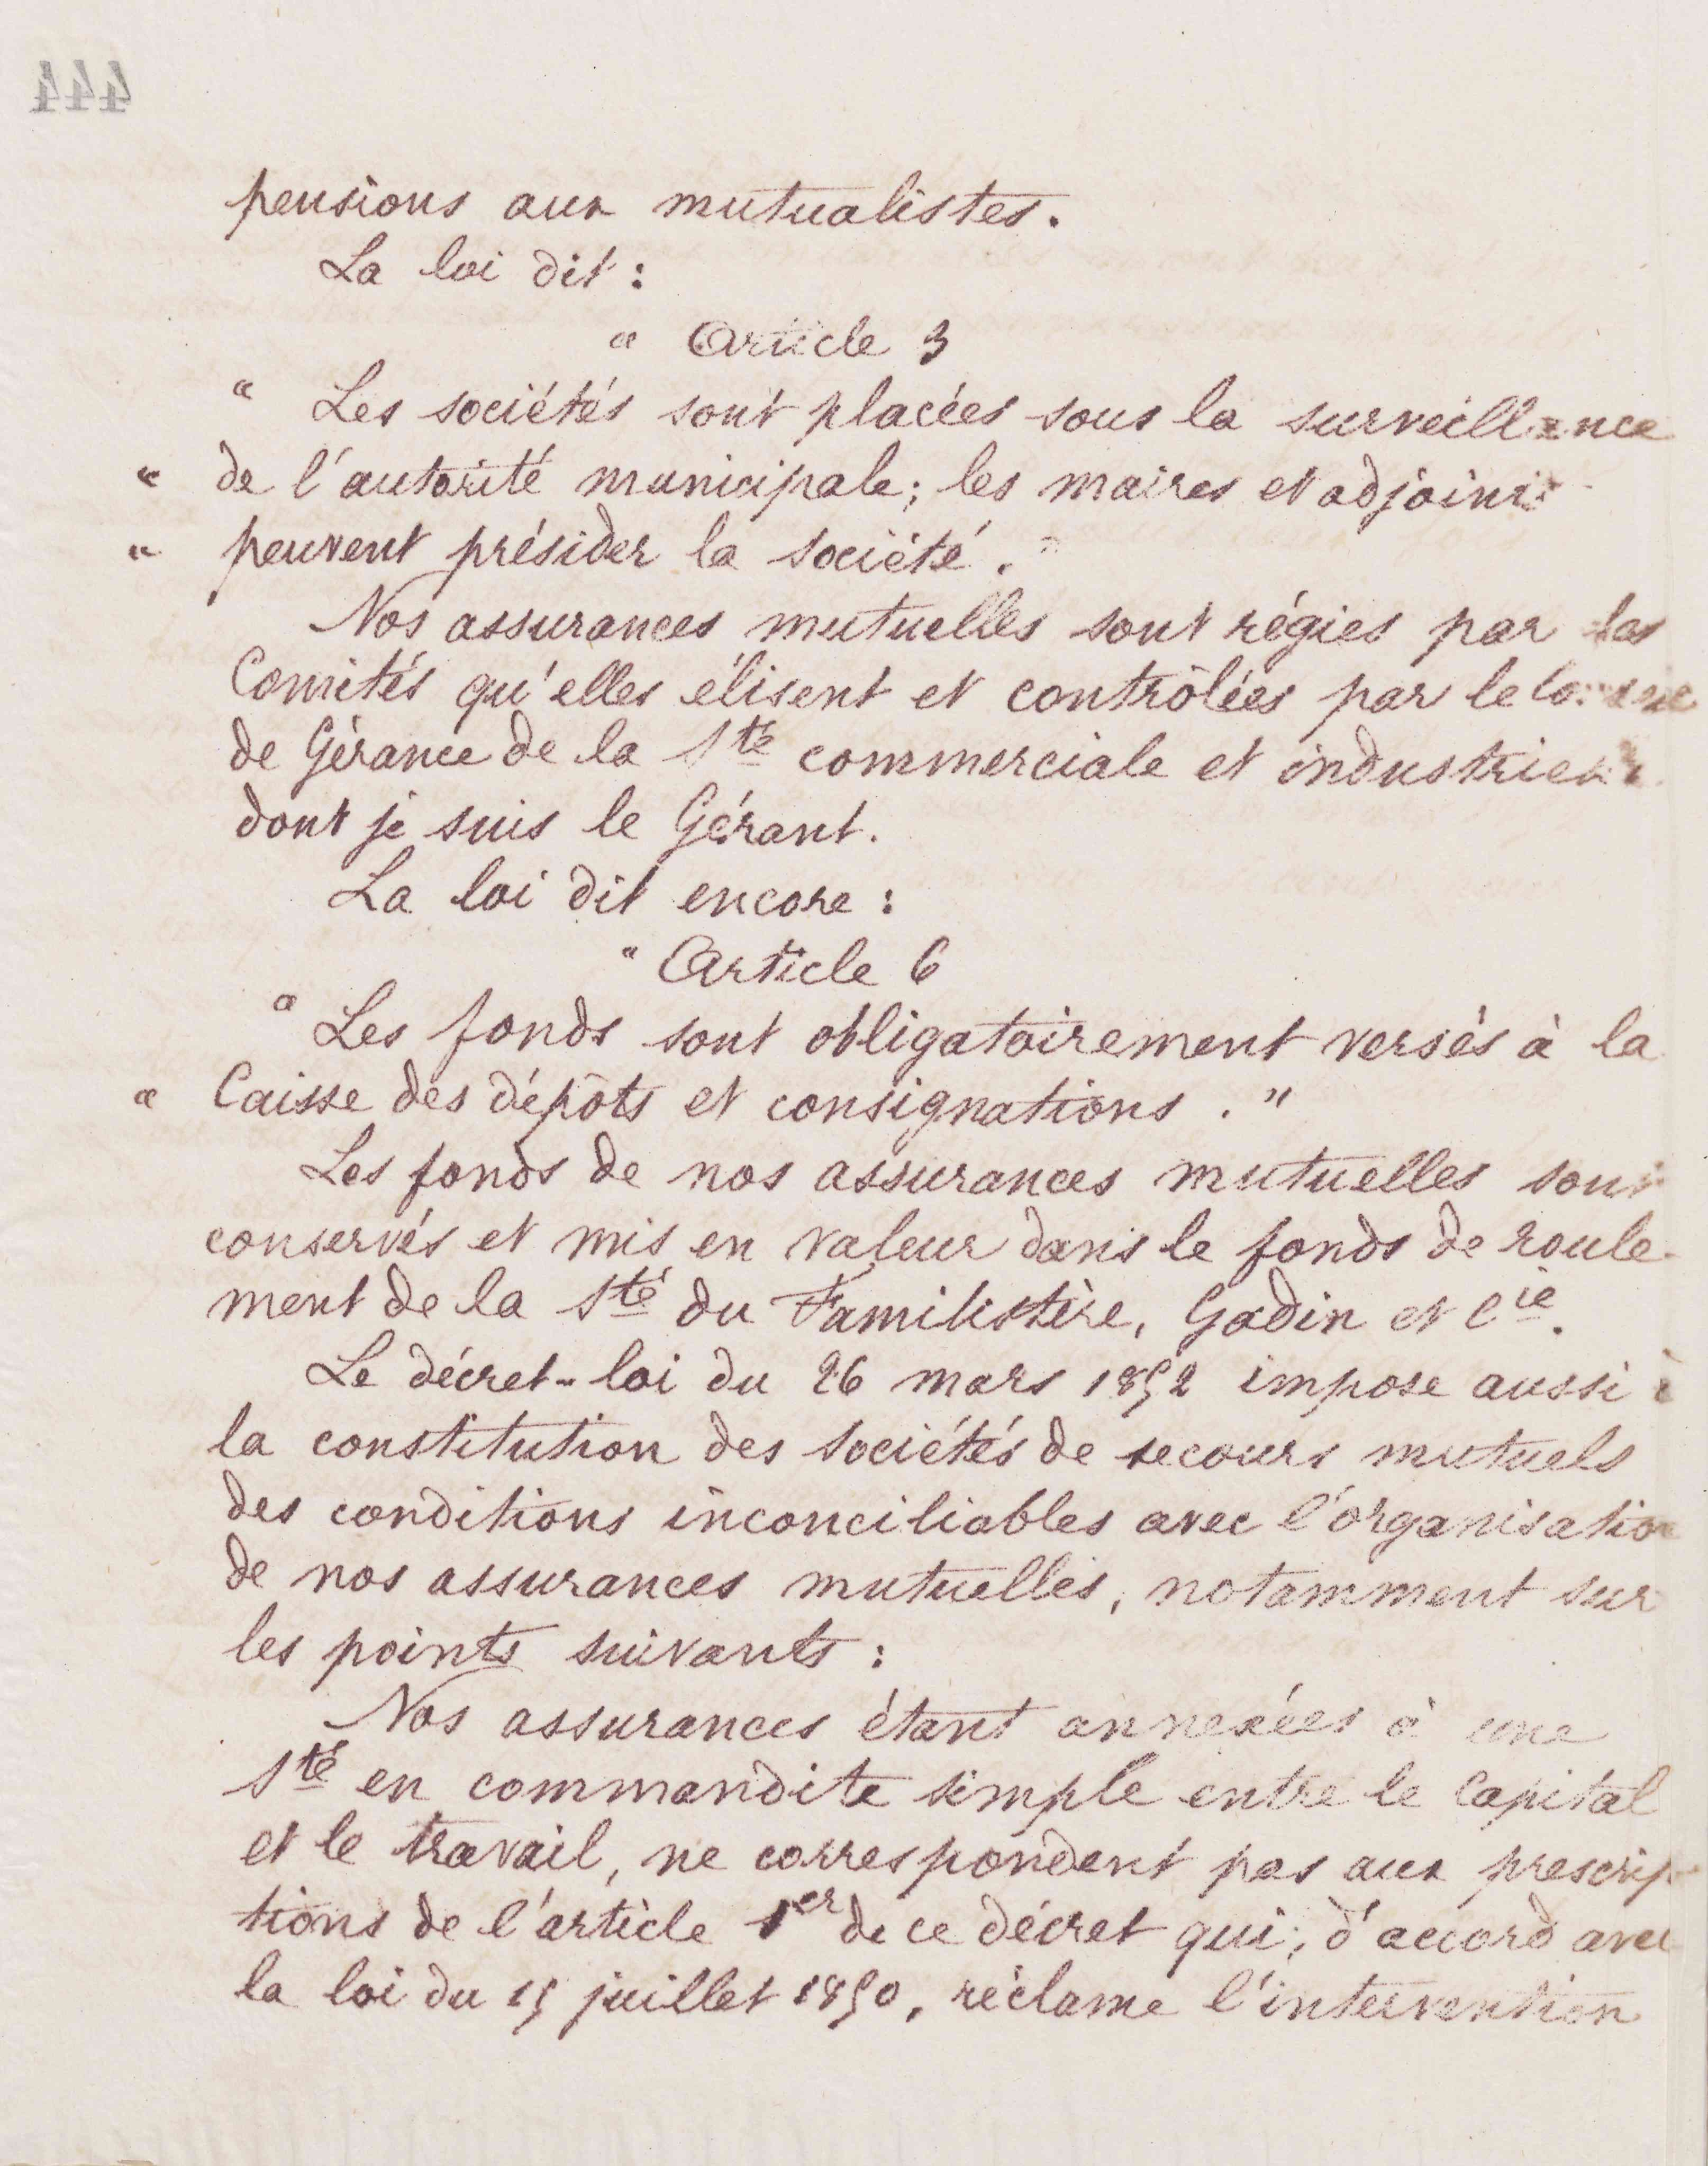 444
pensions aux mutualistes.
La loi dit :
" Article 3
" Les sociétés sont placées sous la surveillance
" de l'autorité municipale ; les maires et adjoints
" peuvent présider la société . "
Nos assurances mutuelles sont régies par les
Comités qu'elles élisent et contrôlées par le
de Gérance de la Sté commerciale et industrielle
dont je suis le Gérant.
La loi dit encore :
" Article 6
" Les fonds sont obligatoirement versés à la
" Caisse des dépôts et consignations . "
Les fonds de nos assurances mutuelles sont
conservés et mis en valeur dans le fonds de roule-
ment de la Sté du Familistère, Godin et Cie.
Le décret-loi du 26 mars 1852 impose aussi à
la constitution des sociétés de secours mutuels
des conditions inconciliables avec l'organisation
de nos assurances mutuelles, notamment sur
les points suivants :
Nos assurances étant annexées à une
Sté en commandite simple entre le Capital
et le travail, ne correspondent pas aux prescrip-
tions de l'article 1er de ce décret qui, d'accord avec
la loi du 15 juillet 1850, réclame l'intervention